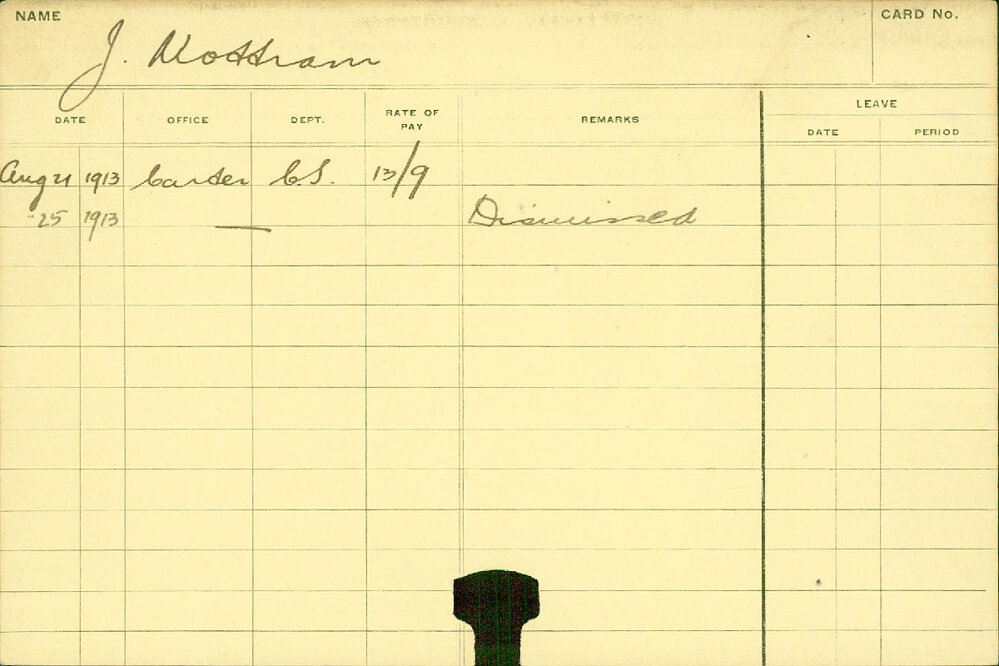 NAME
CARD No.
J. Mottram
DATE OFFICE DEPT. RATE OF PAY REMARKS LEAVE
DATE PERIOD
Aug 21 1913 Carter C.S. 13/9
" 25 1913 — Dismissed